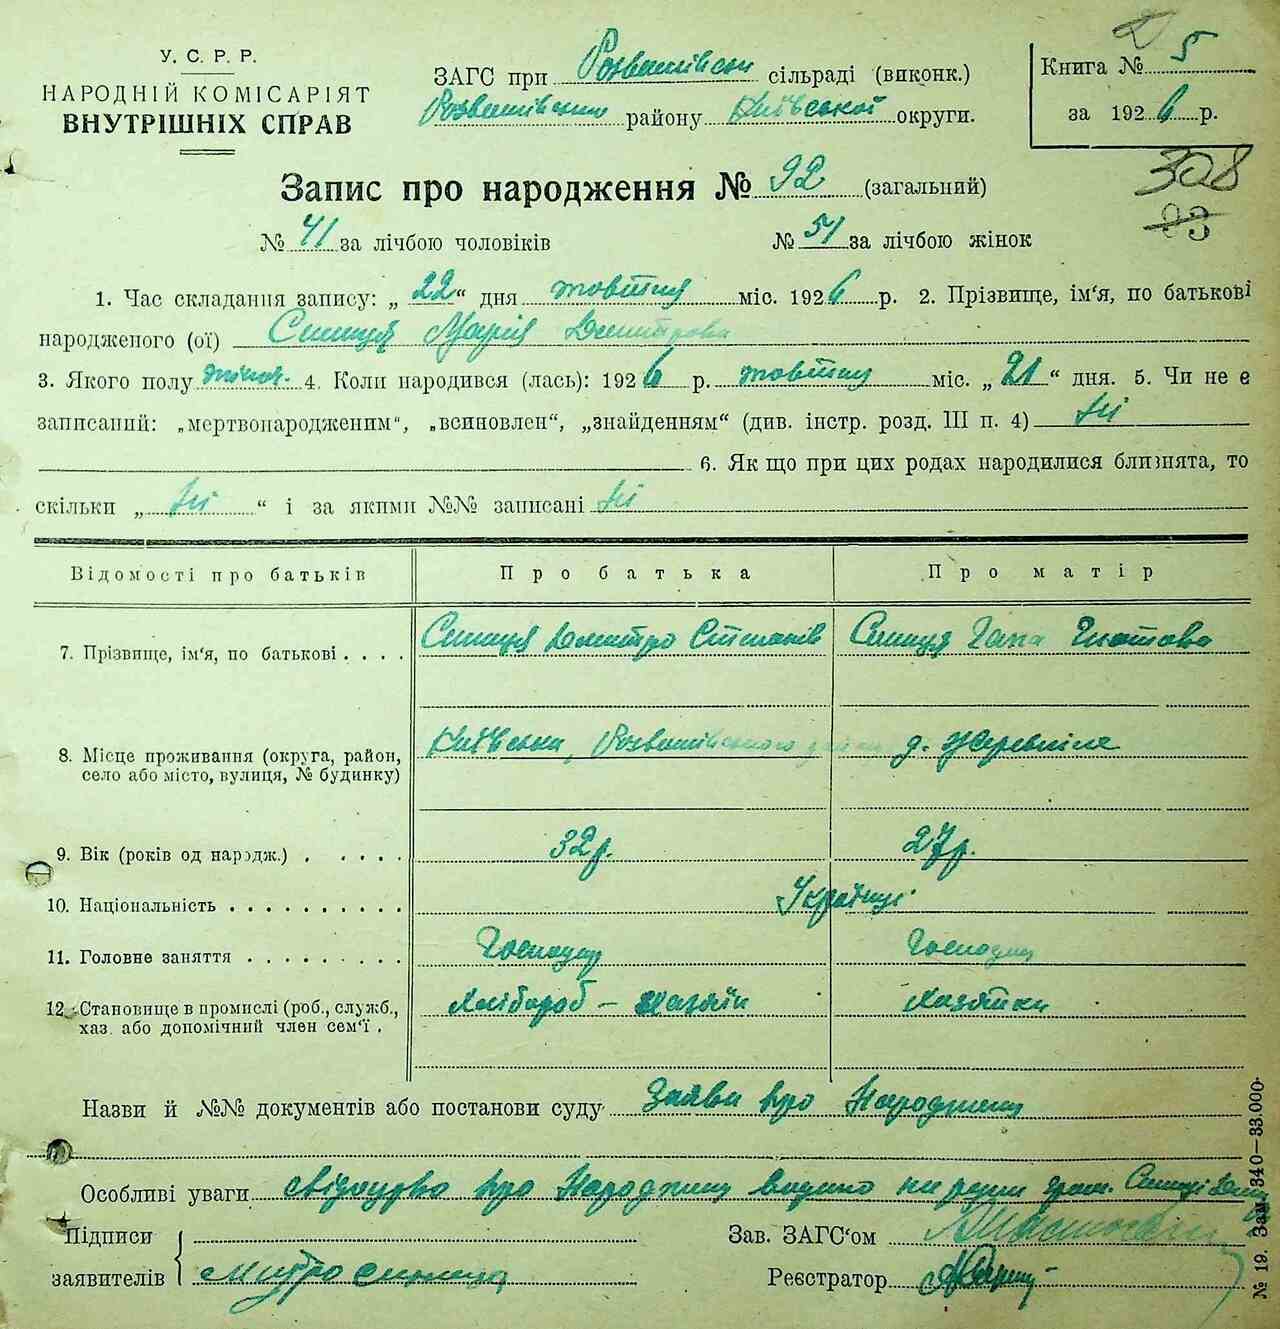 У. С. Р. Р.
НАРОДНІЙ КОМІСАРІЯТ
ВНУТРІШНІХ СПРАВ
ЗАГС при Розважівськ сільраді (виконк.)
Розважівськ району Київської округи.
Книга № 5
за 1926 р.
308
Запис про народження № 92 (загальний)
№ 41 за лічбою чоловіків № 51 за лічбою жінок
1. Час складання запису: „ 22 “ дня жовтня міс. 1926 р. 2. Прізвище, ім‘я, по батькові
народженого (ої) Синиця Марія Дмитрова
3. Якого полу жіноч. 4. Коли народився (лась): 1926 р. жовтня міс. „ 21 “ дня. 5. Чи не є
записаний: „мертвонародженим“, „всиновлен“, „знайденням“ (див. інстр. розд. III п. 4) Ні
6. Як що при цих родах народилися близнята, то
скільки „ Ні “ і за якими №№ записані Ні
Відомості про батьків Про батька Про матір
7. Прізвище, ім‘я, по батькові Синиця Дмитро Степанів Синиця Гапа Гнатова
8. Місце проживання (округа, район, село або місто, вулиця, № будинку) Київськ, Розважівського район д. Жеревпілля
9. Вік (років од народж.) 32 р. 27 р.
10. Національність Українці
11. Головне заняття Господар Господин
12. Становище в промислі (роб., служб., хаз. або допомічний член сем‘ї. Хлібороб – хазяїн Хазяйка
Назви й №№ документів або постанови суду Заява про Народження
Особливі уваги свідоцтво про Народжин видано на руки гром. Синиці
Підписи
заявителів Митро синица
Зав. ЗАГС‘ом
Реєстратор
№ 19. Зам. 340—33.000